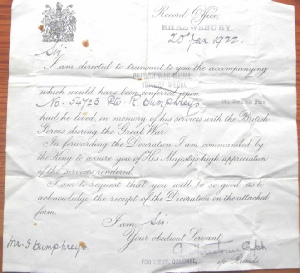 Record Office,
SHREWSBURY.
20 Jan 1922.
Sir
I am directed to transmit to you the accompanying
which would have been conferred upon
No. 54723 Pte. R. Humphreys
had he lived, in memory of his services with the British
Forces during the Great War.
In forwarding the Decoration I am commanded by
the King to assure you of His Majesty's high appreciation
of the services rendered.
I am to request that you will be so good as to
acknowledge the receipt of the Decoration on the attached
form.
I am, Sir,
Your obedient Servant,
Mr. S. Humphreys